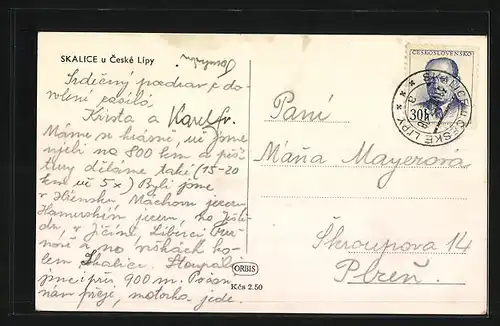 SKALICE u České Lípy
Srdečný pozdrav z do-
volení zasílá
Krista a Karel
Máme se krásně, už jsme
ujeli na 800 km a pěš
túry děláme také (15-20
km už 5x) Byli jsme
v Máchovo jezero,
jezero, na Ješt
du, v Jičíně, Liberci
a na
lem Skalice. Stoupali
jsme i přes 900 m. Počasí
nám přeje, motorka jede.
ORBIS
Kčs 2.50
ČESKOSLOVENSKO
30h
SKALICE U ČESKÉ LÍPY
Paní
Máňa Mayerová
Škroupova 14
Plzeň.